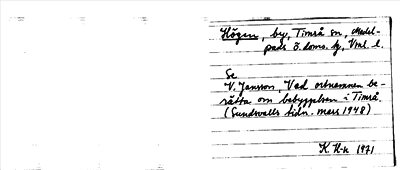 Högen, by, Timrå sn, Medel-
pads 3. doms. h, Vnl. l.
Se
V. Jansson, Vad ortnamnen be-
rätta om bebyggelsen i Timrå.
(Sundsvalls tidn. mars 1948)
K. H-k 1971